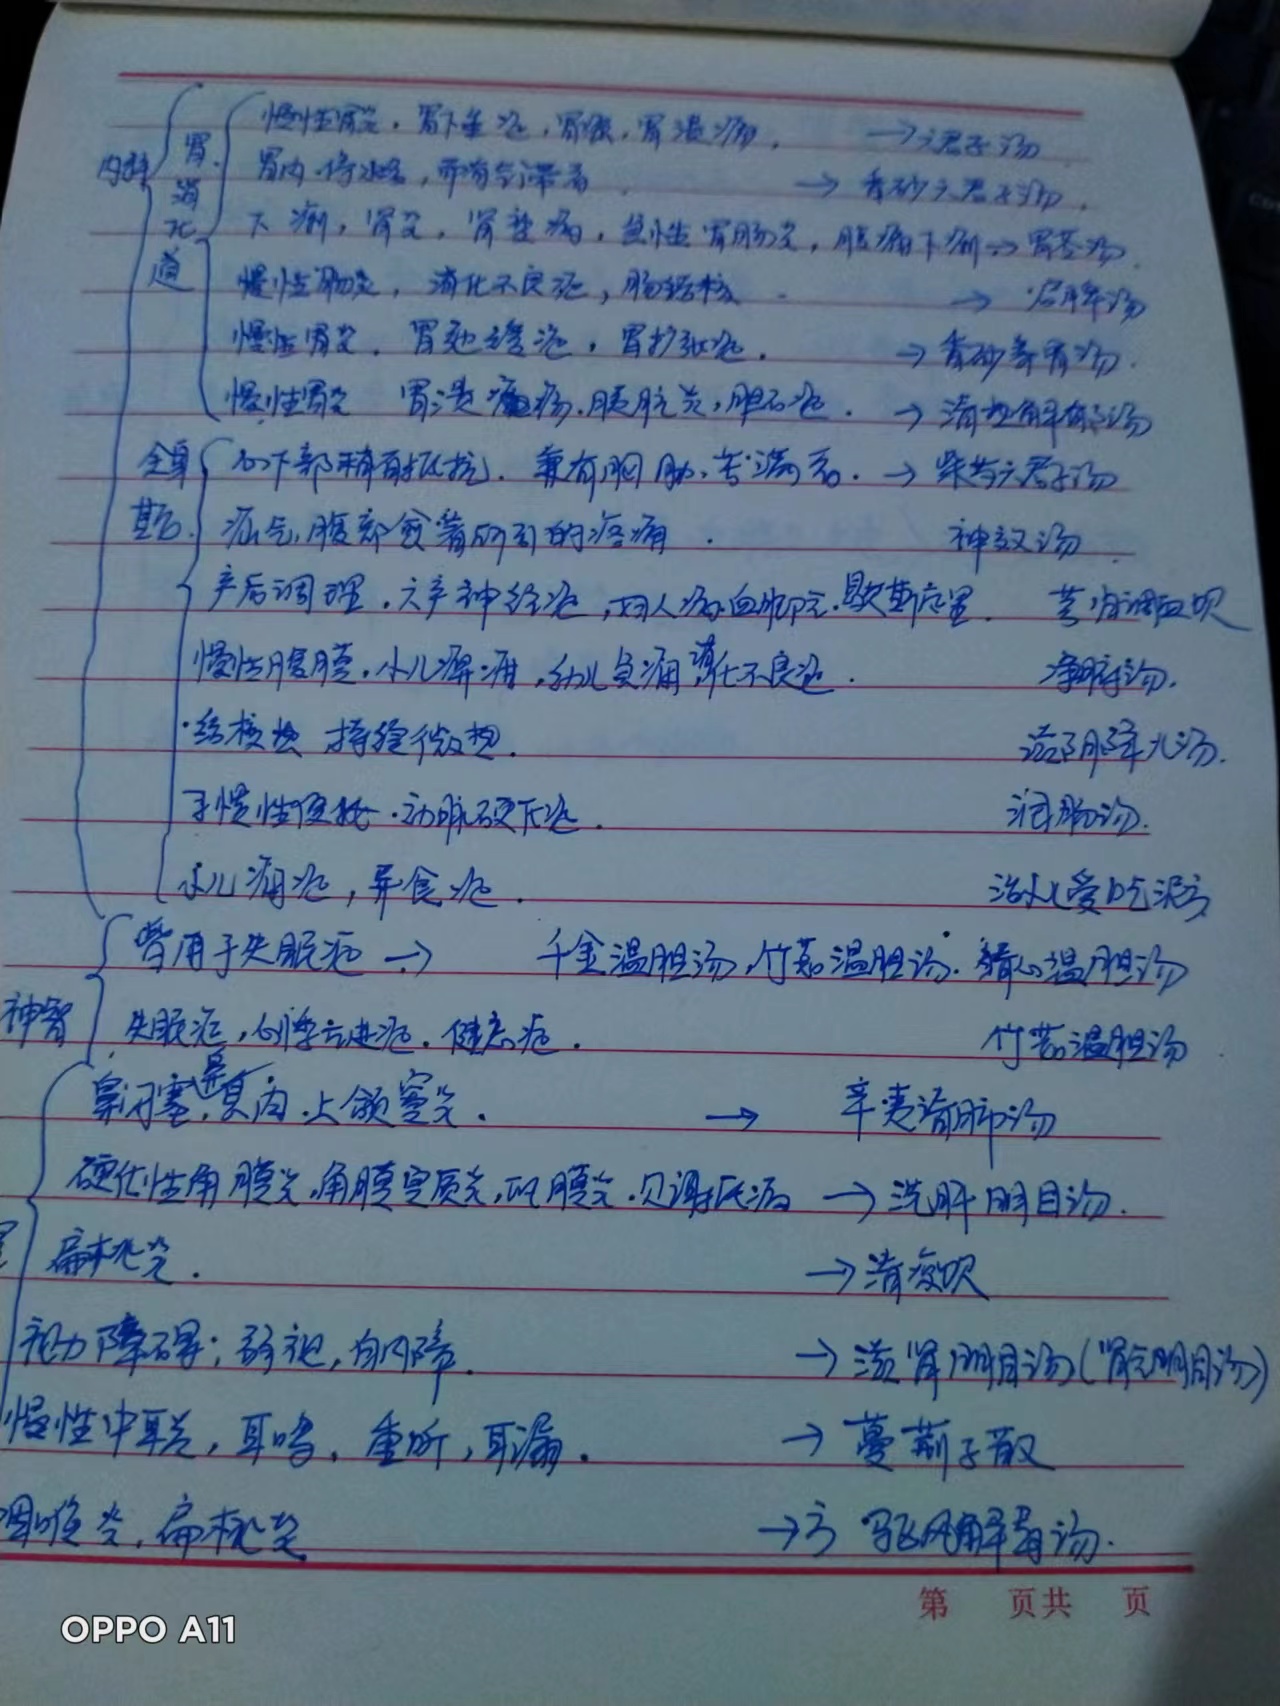 内科
胃消化道
慢性胃炎，胃下垂症，胃癌，胃溃疡， →六君子汤
胃内停水，而有气滞者 → 香砂六君子汤，
下痢，胃炎，急性胃肠炎，腹痛下痢→胃苓汤
慢性肠炎，消化不良症，肠结核 → 启脾汤
慢性胃炎，胃弛缓症，胃扩张症． → 香砂养胃汤．
慢性胃炎 胃溃疡，胰脏炎，胆石症． → 清热解郁汤
全身
心下部稍有抵抗，兼有胸胁苦满者． → 柴芍六君子汤
疝气，腹部愈着所引的疼痛． 神效汤．
产后调理，六产神经症，妇人病血脚气，歇斯底里． 芎归调血饮
慢性腹膜，小儿脾疳，幼儿 消化不良症． 净腑汤．
·结核热 持续微热． 滋阴降火汤．
于慢性便秘·动脉硬化症． 润肠汤．
小儿 症，异食症． 治小儿爱吃泥方
神智
皆用于失眠症 → 千金温胆汤，竹茹温胆汤． 温胆汤
失眠症，心悸亢进症．健忘症． 竹茹温胆汤
鼻闭塞，鼻息肉．上颌窦炎． → 辛夷清肺汤
硬化性角膜炎，角膜实质炎，巩膜炎． → 洗肝明目汤．
扁桃炎． →清咽
视力障碍；弱视，白内障． → 滋肾明目汤(肾气明目汤)
慢性中耳炎，耳鸣，重听，耳漏． → 蔓荆子散
咽喉炎，扁桃炎 →方 驱风解毒汤．
第 页共 页
OPPO A11